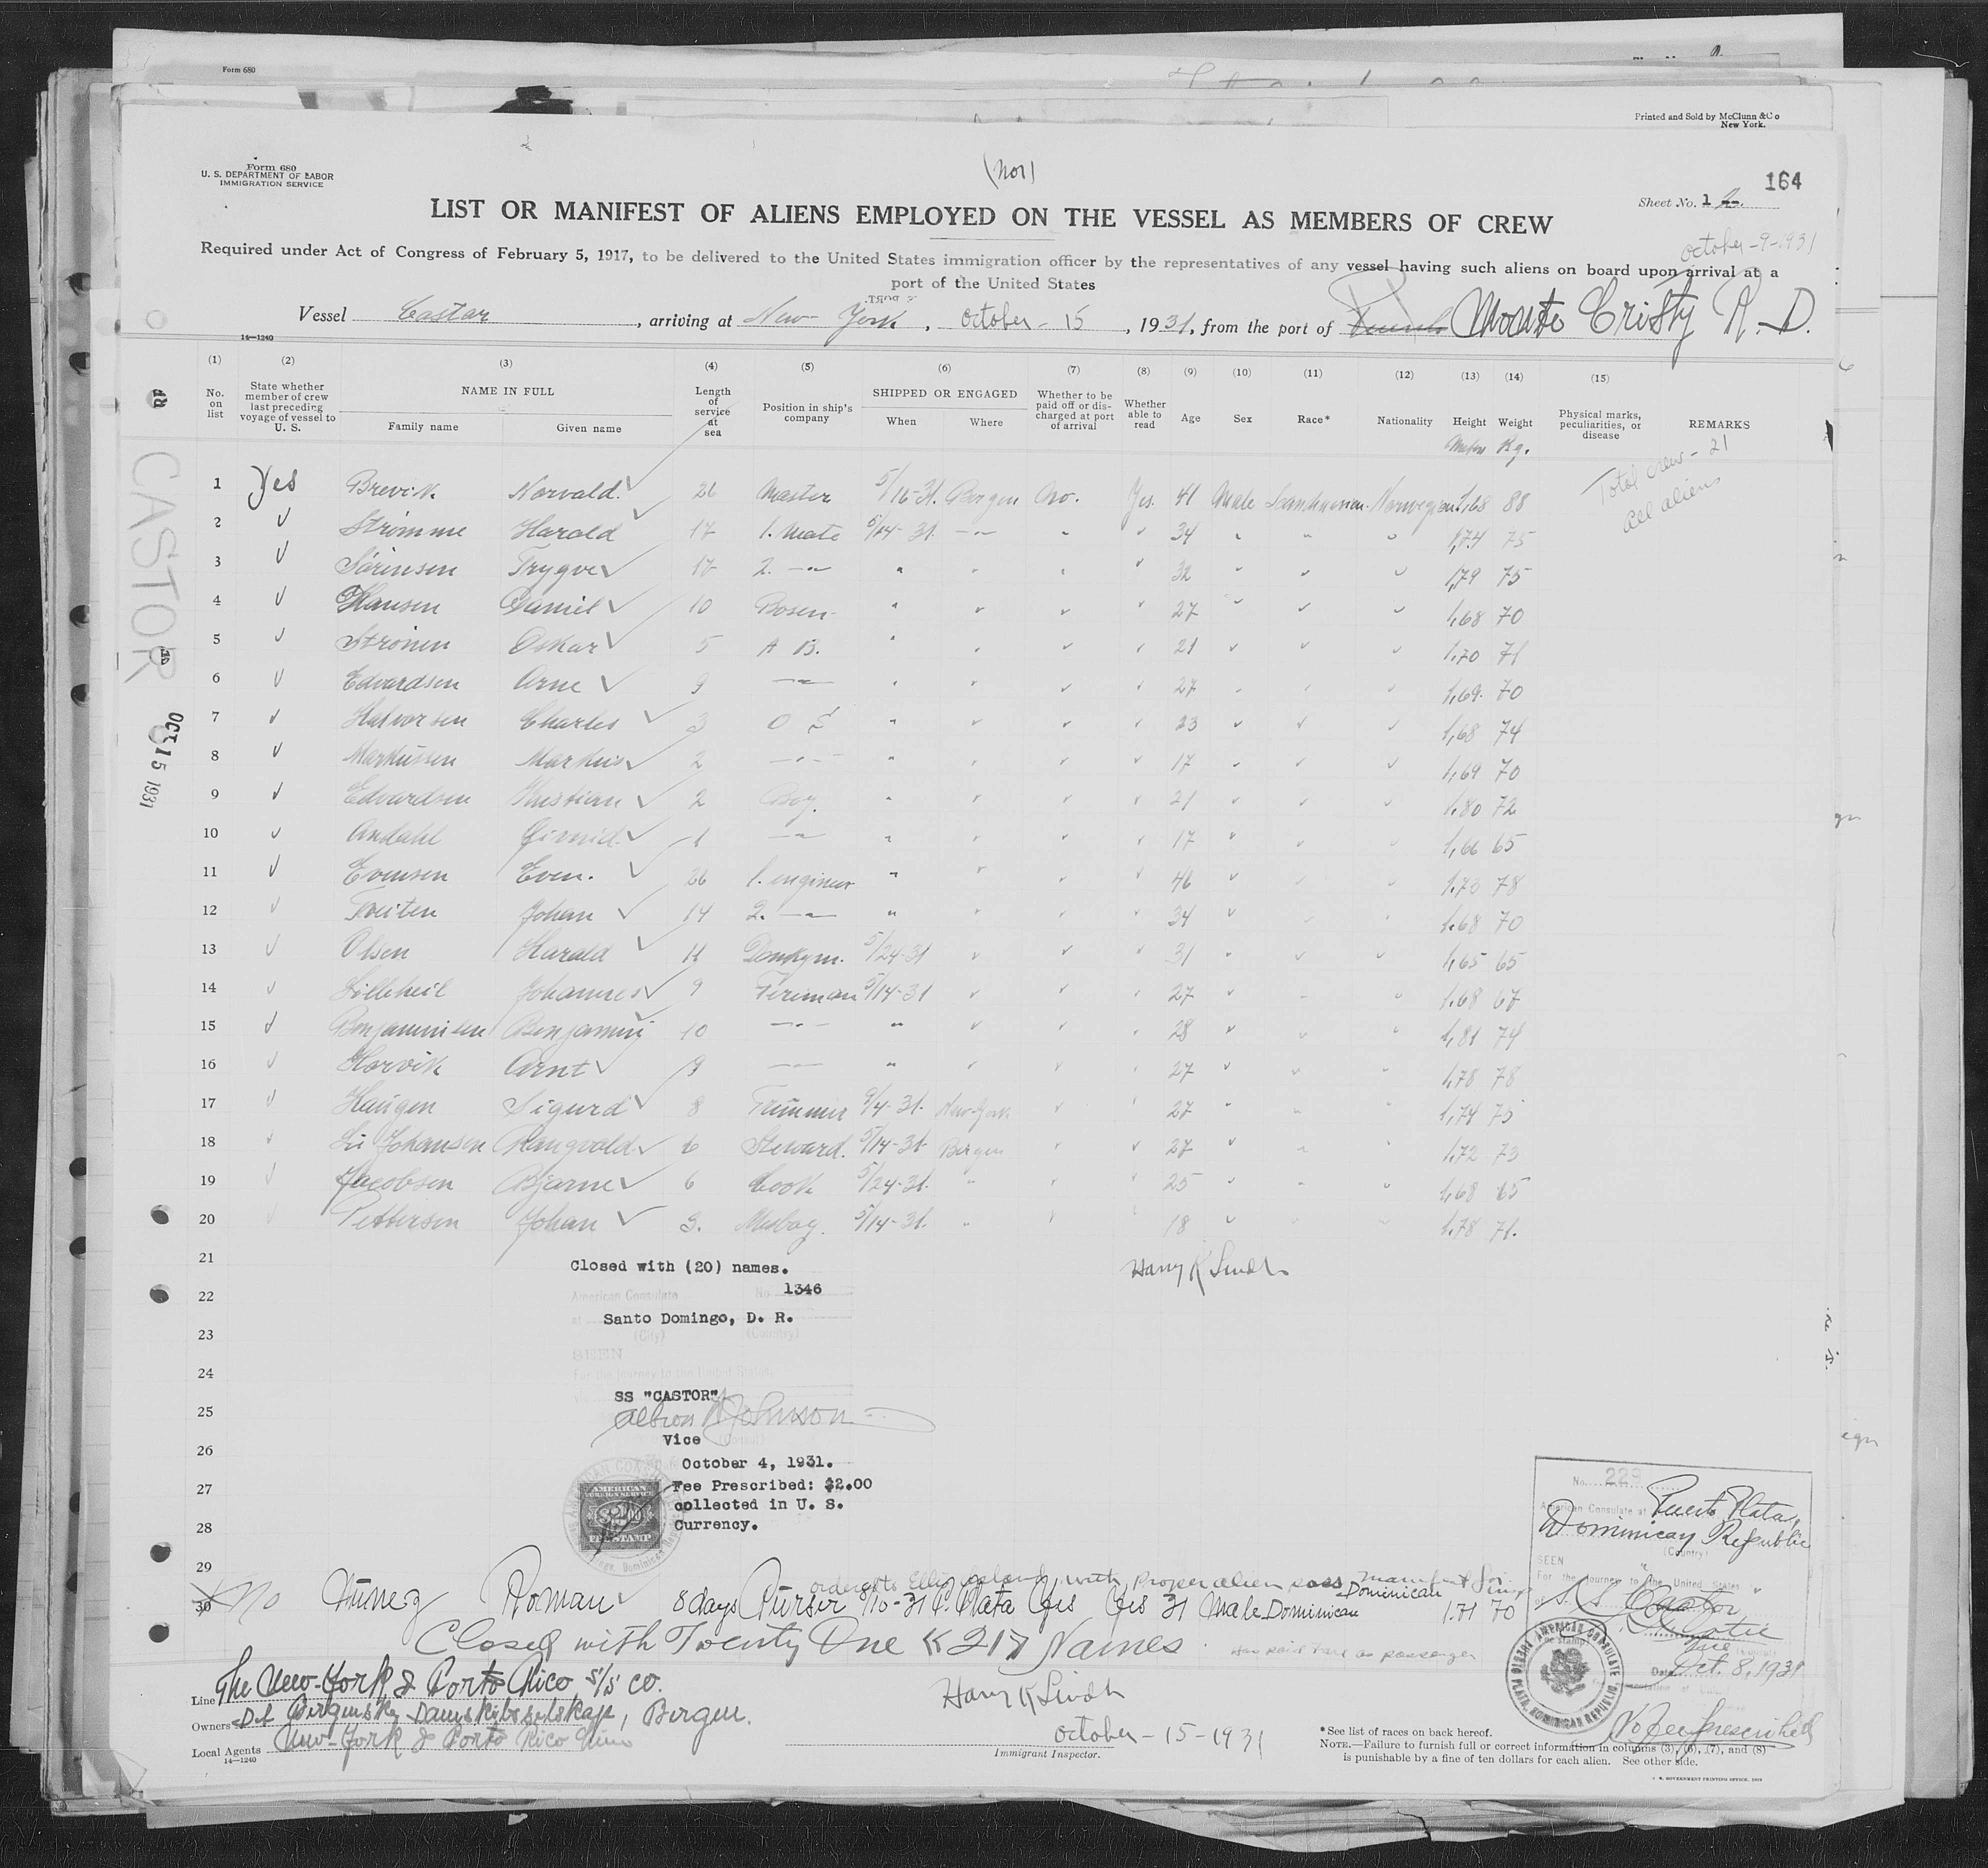 Form 680
Printed and Sold by McClunn & Co
New York.
Form 680
U. S. DEPARTMENT OF LABOR
IMMIGRATION SERVICE
(Nor)
164
Sheet No. 1
LIST OR MANIFEST OF ALIENS EMPLOYED ON THE VESSEL AS MEMBERS OF CREW
october-9-1931
Required under Act of Congress of February 5, 1917, to be delivered to the United States immigration officer by the representatives of any vessel having such aliens on board upon arrival at a
port of the United States
Vessel Castor, arriving at New-York, october-15, 1931, from the port of Monte Cristy R.D.
14—1240
(1) (2) (3) (4) (5) (6) (7) (8) (9) (10) (11) (12) (13) (14) (15)
No. on list
State whether member of crew last preceding voyage of vessel to U. S.
NAME IN FULL
Family name
Given name
Length of service at sea
Position in ship's company
SHIPPED OR ENGAGED
When
Where
Whether to be paid off or discharged at port of arrival
Whether able to read
Age
Sex
Race*
Nationality
Height
Weight Kg.
Physical marks, peculiarities, or disease
REMARKS
Total crew - 21
all aliens
1 Yes Brevik Norvald 26 Master 5/16-31. Bergen No. Yes. 41 Male Scandinavian Norwegian 1,68 88
2 Strømme Harald 17 1. Mate 5/14-31. -"- " " 34 " " " 1,74 75
3 Sörensen Trygve 17 2. -"- " " " " 32 " " " 1,79 75
4 Hansen Daniel 10 Bosen " " " " 27 " " " 1,68 70
5 Strönen Oskar 5 A B. " " " " 21 " " " 1.70 71
6 Edvardsen Arne 9 -"- " " " " 27 " " " 1,69. 70
7 Halvorsen Charles 3 O S " " " " 23 " " " 1,68 74
8 Markussen Markus 2 -"- " " " " 17 " " " 1,69 70
9 Edvardsen Kristian 2 Boy. " " " " 21 " " " 1.80 72
10 Andahl 1 -"- " " " " 17 " " " 1,66 65
11 Evensen Even. 26 1. engineer " " " " 46 " " " 1.73 78
12 Tveiten Johan 14 2. -"- " " " " 34 " " " 1.68 70
13 Olsen Harald 11 Donkym. 5/24-31 " " " 31 " " " 1,65 65
14 Lilleheil Johannes 9 Fireman 5/14-31 " " " 27 " " " 1.68 67
15 Benjaminsen Benjamin 10 -"- " " " " 28 " " " 1,81 74
16 Horvik Arnt 9 -"- " " " " 27 " " " 1,78 78
17 Haugen Sigurd 8 Trimmer 9/4-31. New-York " " 27 " " " 1,74 75
18 Johansen Rangvald 6 Steward. 5/14-31- Bergen " " 27 " " " 1.72 73
19 Jacobsen Bjarne 6 Cook 5/24-31. " " " 25 " " " 1,68 65
20 Pettersen Johan 3. Messboy. 5/14-31. " " " 18 " " " 1.78 71.
21
Closed with (20) names.
Harry K Lindh
22
American Consulate No. 1346
at Santo Domingo, D. R.
(City) (Country)
23
SEEN
24
For the journey to the United States
SS "CASTOR"
25
Albion W Johnson
Vice (Consul)
26
October 4, 1931.
27
Fee Prescribed: $2.00
collected in U. S.
28
Currency.
AMERICAN
FOREIGN SERVICE
$2.00
FEE STAMP
29
ordered to Ellis Island with proper alien pass. manifest
30 No Nunez Roman 8 days Purser 8/10-31 P. Plata Yes Yes 31 Male Dominican Dominican 1.71 70
Closed with Twenty One (21) Names.
Has paid fare as passenger
Line The New-York & Porto Rico S/S co.
Owners Det Bergenske Dampskibsselskap, Bergen.
Local Agents New-York & Porto Rico Line
14—1240
Harry K Lindh
october-15-1931
Immigrant Inspector.
*See list of races on back hereof.
NOTE.—Failure to furnish full or correct information in columns (3), (6), (7), and (8)
is punishable by a fine of ten dollars for each alien. See other side.
U. S. GOVERNMENT PRINTING OFFICE
No. 229
American Consulate at Puerto Plata,
Dominican Republic
(Country)
SEEN
For the journey to the United States
S S Castor
Vice
Date Oct. 8, 1931
No fee prescribed
AMERICAN CONSULATE
PUERTO PLATA, DOMINICAN REPUBLIC
CASTOR
OCT 15 1931